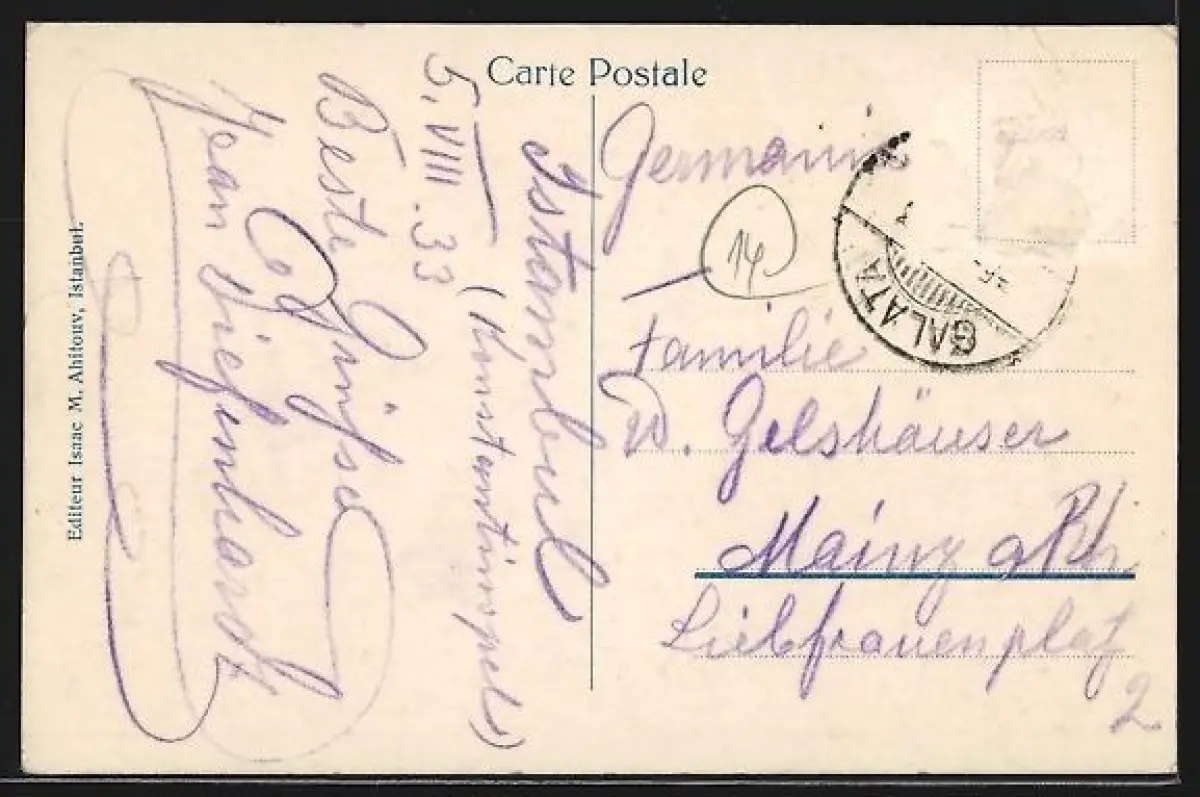 Carte Postale
Istambul
(Konstantinopel)
5.VIII.33
Beste Grüsse
Jean
Germania
14
GALATA
Familie
W. Gelshäuser
Mainz a Rh
Liebfrauenplatz
2
Editeur Isaac M. Ahitouv, Istanbul.